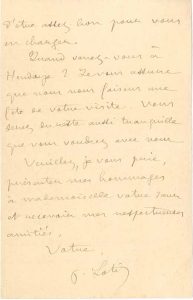 d'être assez bon pour vous
en charger.
Quand venez-vous à
Hendaye ? Je vous assure
que nous nous faisons une
fête de votre visite. Vous
serez du reste aussi tranquille
que vous voudrez avec nous
Veuillez, je vous prie,
présenter mes hommages
à mademoiselle votre sœur
et recevoir mes respectueuses
amitiés,
Votre
P. Loti